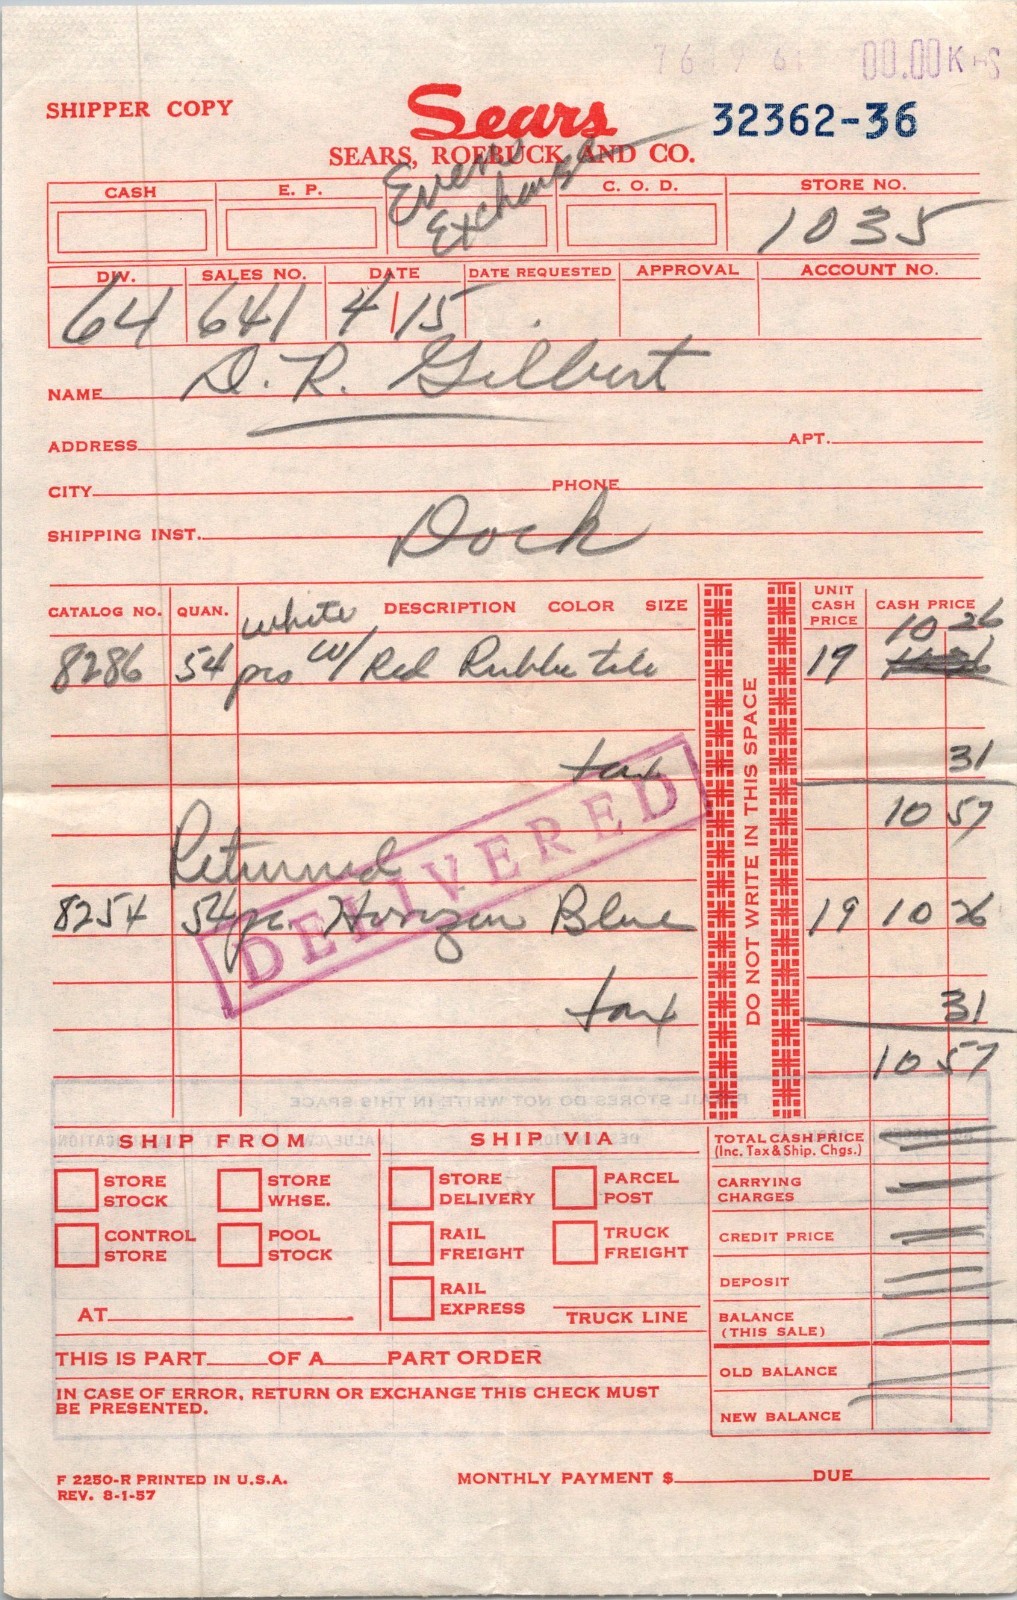 00.00
SHIPPER COPY
Sears
32362-36
SEARS, ROEBUCK AND CO.
Even
Exchange
CASH E. P. C. O. D. STORE NO.
1035
DIV. SALES NO. DATE DATE REQUESTED APPROVAL ACCOUNT NO.
64 641 4/15
NAME D. R. Gilbert
ADDRESS APT.
CITY PHONE
SHIPPING INST. Dock
CATALOG NO. QUAN. DESCRIPTION COLOR SIZE UNIT CASH PRICE CASH PRICE
white 10 26
8286 54 pcs w/ Red Rubber tile 19
tax 31
10 57
Returned
8254 54 pc. Horizon Blue 19 10 26
tax 31
10 57
DELIVERED
DO NOT WRITE IN THIS SPACE
RETAIL STORES DO NOT WRITE IN THIS SPACE
SHIP FROM
STORE STOCK
STORE WHSE.
CONTROL STORE
POOL STOCK
AT
SHIP VIA
STORE DELIVERY
PARCEL POST
RAIL FREIGHT
TRUCK FREIGHT
RAIL EXPRESS
TRUCK LINE
TOTAL CASH PRICE
(Inc. Tax & Ship. Chgs.)
CARRYING CHARGES
CREDIT PRICE
DEPOSIT
BALANCE
(THIS SALE)
OLD BALANCE
NEW BALANCE
THIS IS PART OF A PART ORDER
IN CASE OF ERROR, RETURN OR EXCHANGE THIS CHECK MUST
BE PRESENTED.
F 2250-R PRINTED IN U.S.A.
REV. 8-1-57
MONTHLY PAYMENT $ DUE